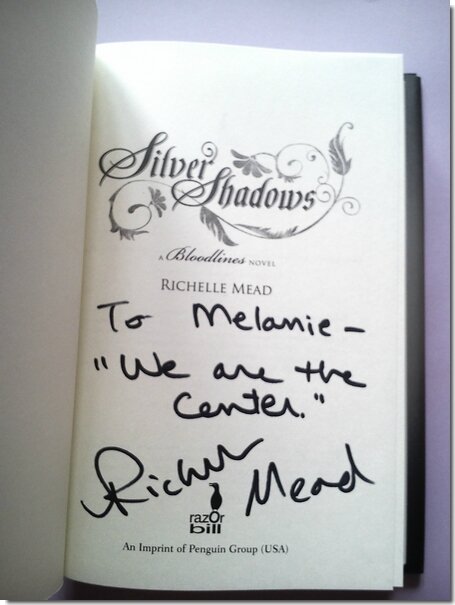 Silver
Shadows
A Bloodlines NOVEL
RICHELLE MEAD
To Melanie –
"We are the
center."
Richelle Mead
razOr
bill
An Imprint of Penguin Group (USA)